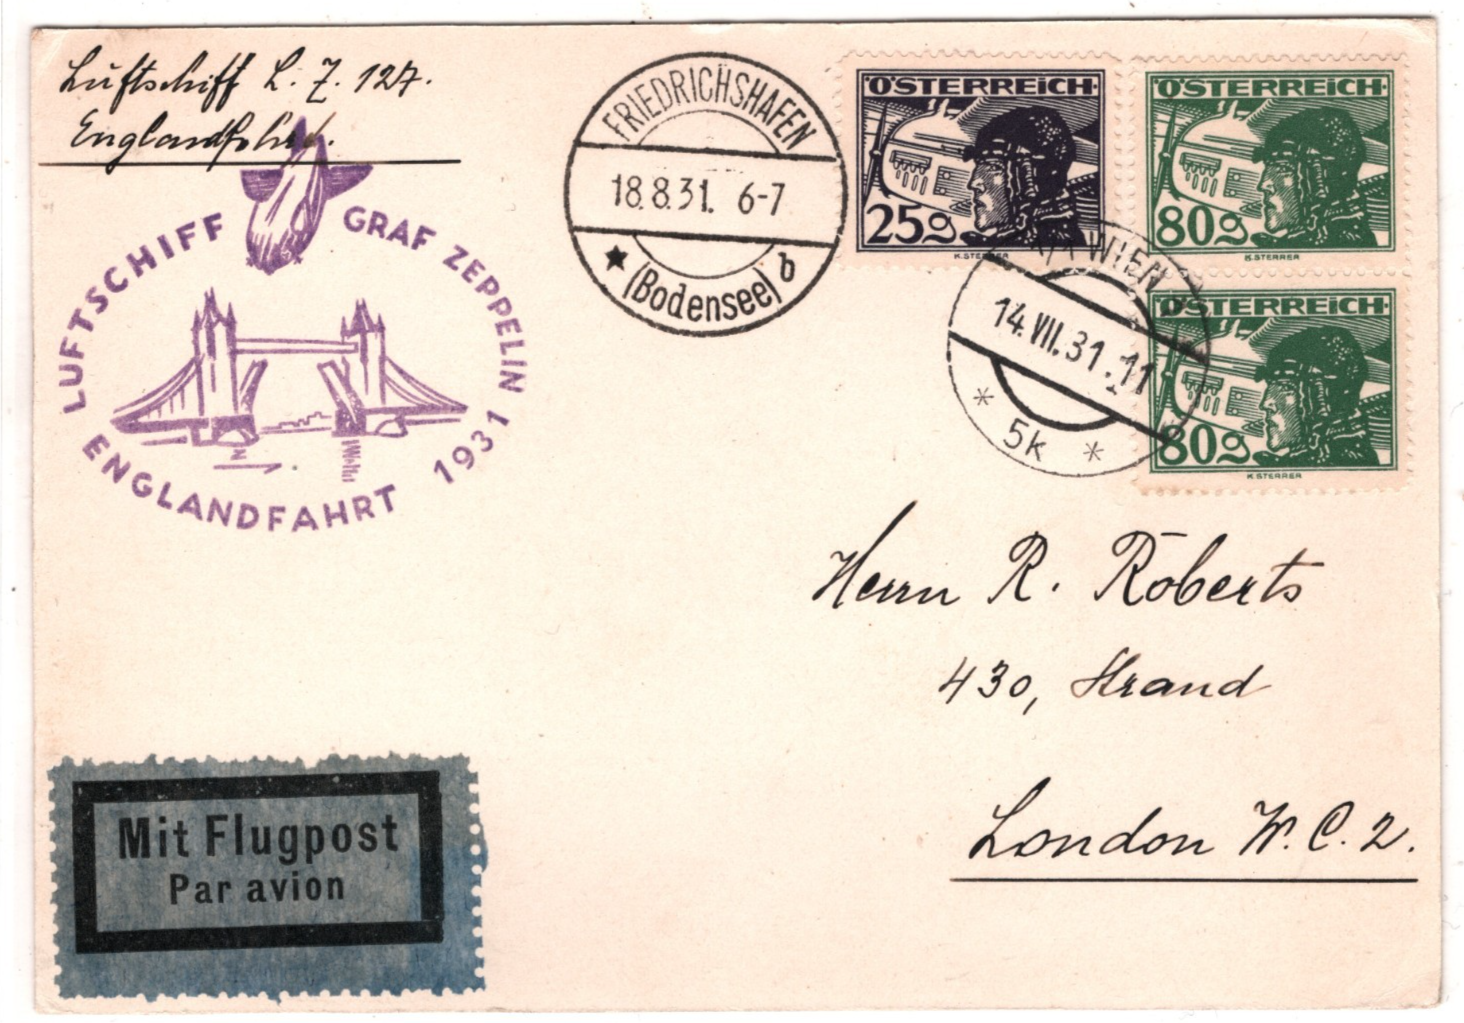 Luftschiff L. Z. 127.
Englandfahrt.
LUFTSCHIFF GRAF ZEPPELIN
ENGLANDFAHRT 1931
FRIEDRICHSHAFEN
18.8.31. 6-7
(Bodensee) b
ÖSTERREICH
25g
K.STERRER
ÖSTERREICH
80g
K.STERRER
ÖSTERREICH
80g
K.STERRER
WIEN
14.VII.31.11
* 5k *
Herrn R. Roberts
430, Strand
London W. C. 2.
Mit Flugpost
Par avion